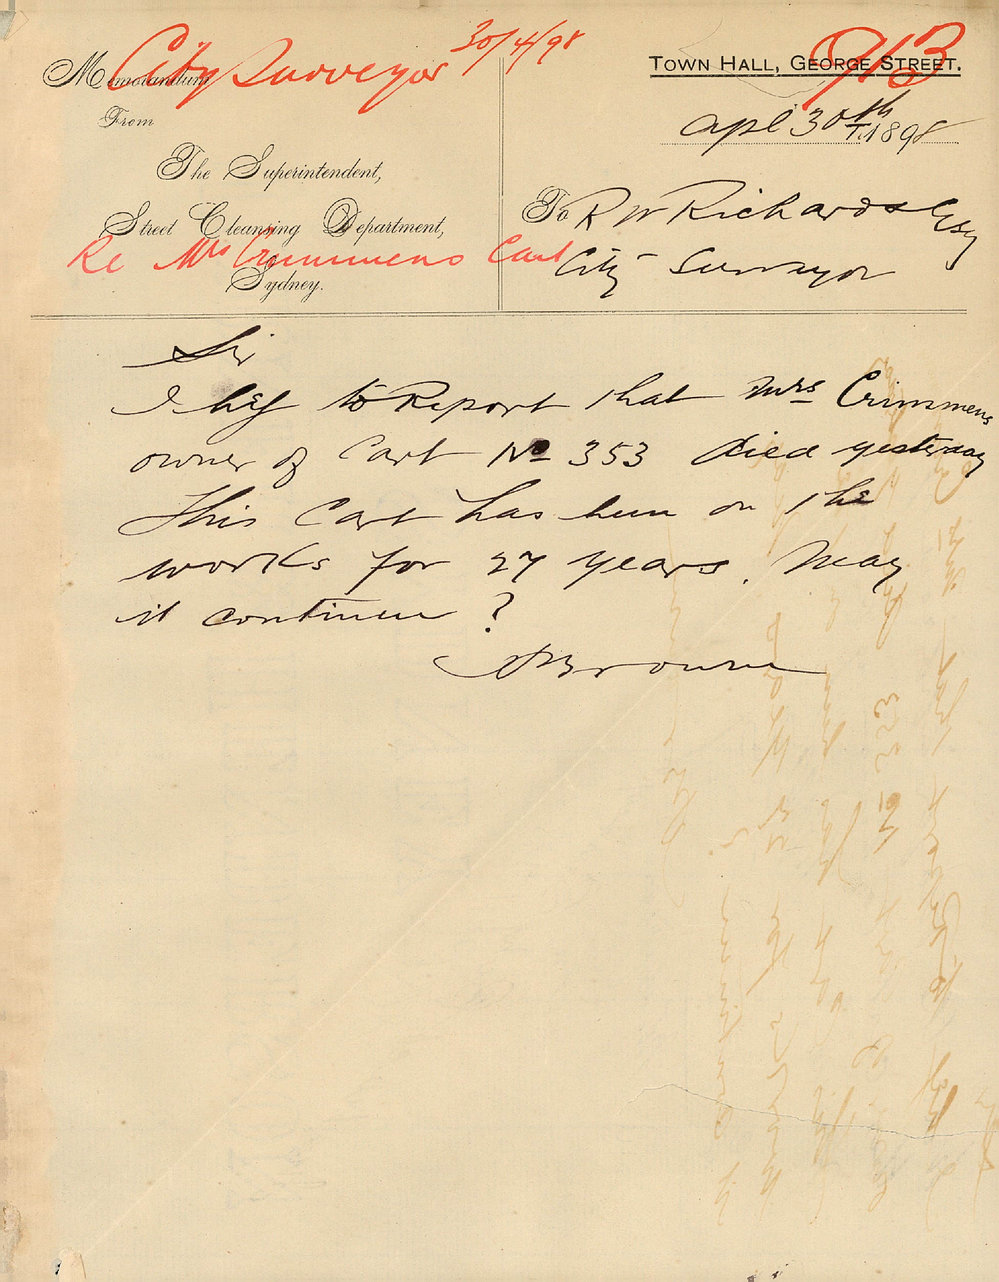 City Surveyor 30/4/98
913
Memorandum
From
The Superintendent,
Street Cleansing Department,
Sydney.
Re Mrs Crimmens Cart
TOWN HALL, GEORGE STREET.
Apl 30th 1898
To R W Richards Esq
City Surveyor
Sir
I beg to Report that Mrs Crimmens
owner of Cart No 353 died yesterday
This Cart has been on the
works for 27 years. May
it continue?
Browne